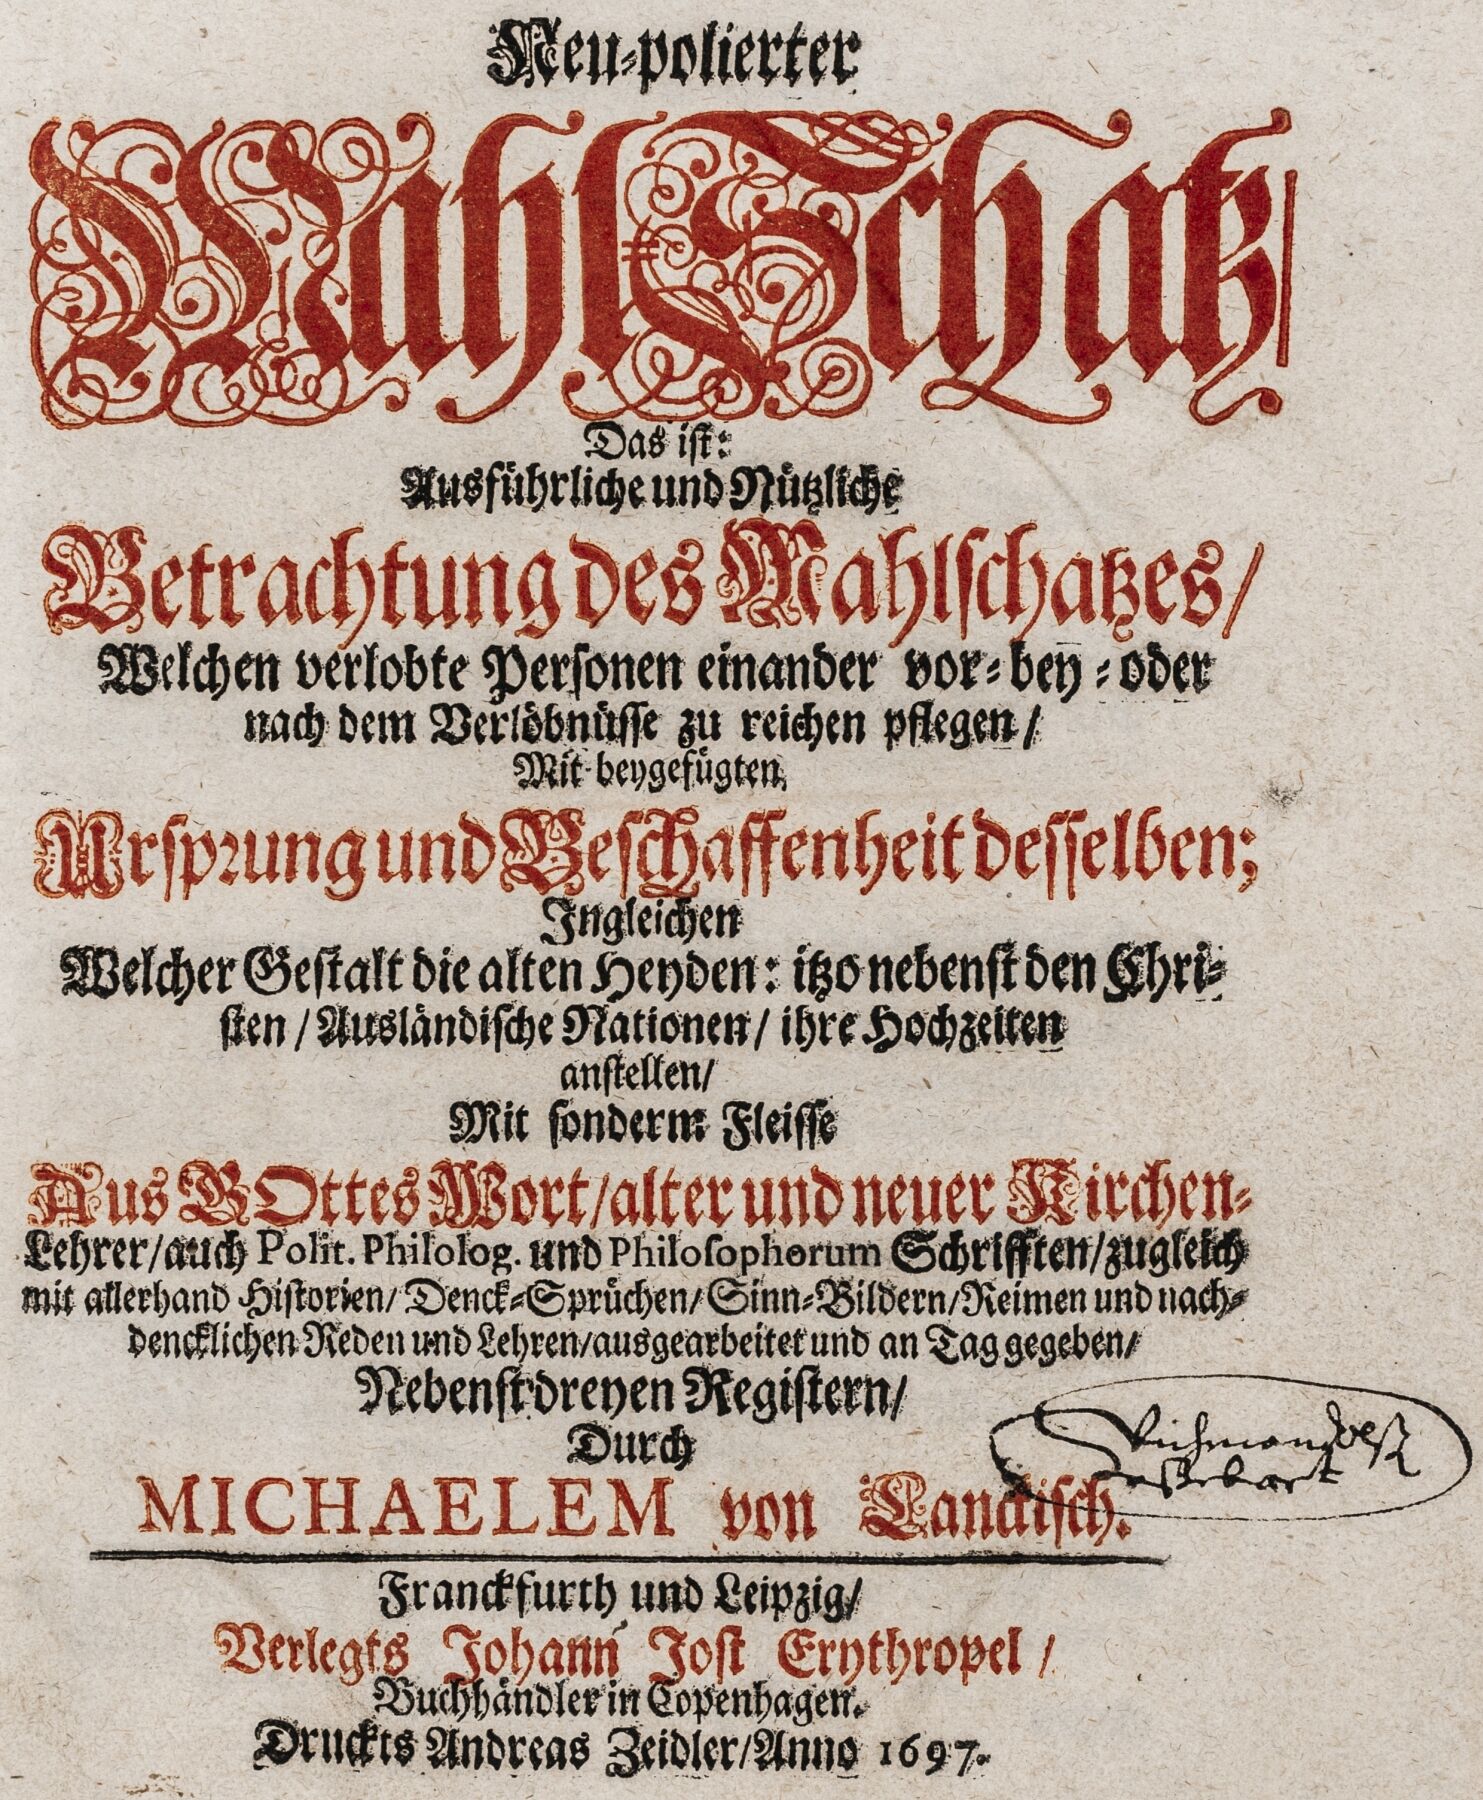 Neu-polierter
Mahl-Schatz/
Das ist:
Ausführliche und Nützliche
Betrachtung des Mahlschatzes/
Welchen verlobte Personen einander vor- bey- oder
nach dem Verlöbnüsse zu reichen pflegen/
Mit beygefügten
Ursprung und Beschaffenheit desselben;
Ingleichen
Welcher Gestalt die alten Heyden: itzo nebenst den Chri-
sten/ Ausländische Nationen/ ihre Hochzeiten
anstellen/
Mit sonderm Fleisse
Aus GOttes Wort/ alter und neuer Kirchen-
Lehrer/ auch Polit. Philolog. und Philosophorum Schrifften/ zugleich
mit allerhand Historien/ Denck-Sprüchen/ Sinn-Bildern/ Reimen und nach-
dencklichen Reden und Lehren/ ausgearbeitet und an Tag gegeben/
Nebenst dreyen Registern/
Durch
MICHAELEM von Lanckisch.
Franckfurth und Leipzig/
Verlegts Johann Jost Erythropel/
Buchhändler in Copenhagen.
Druckts Andreas Zeidler/ Anno 1697.